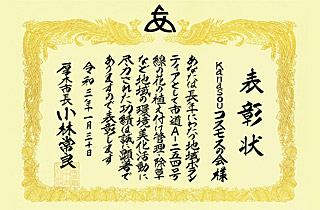 表彰状
Kanasou コスモスの会 様
あなたは長年にわたり地域ボラン
ティアとして市道A-二五四号
線の花の植え付け管理・除草
など地域の環境美化活動に
尽力された功績は誠に顕著で
ありますので表彰します
令和三年一月三十日
厚木市長 小林常良